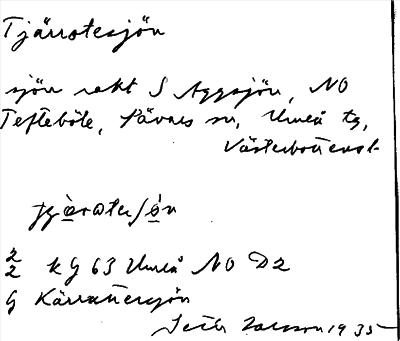 Tjärrotesjön
sjön rakt S Aggsjön, NO
Tefteböle, Sävars sn, Umeå tg,
Västerbottens l.
2 kg 63 Umeå NO D2
2
G Kärrattersjön
Seth Larsson 1935